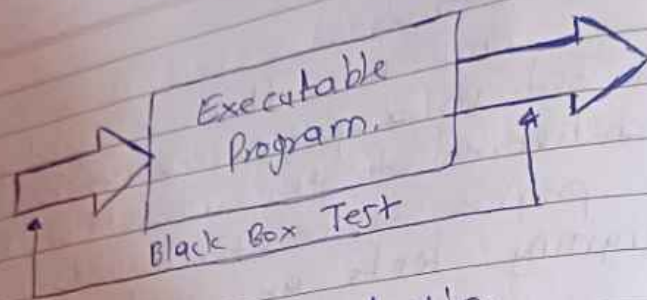 Executable
Program.
Black Box Test